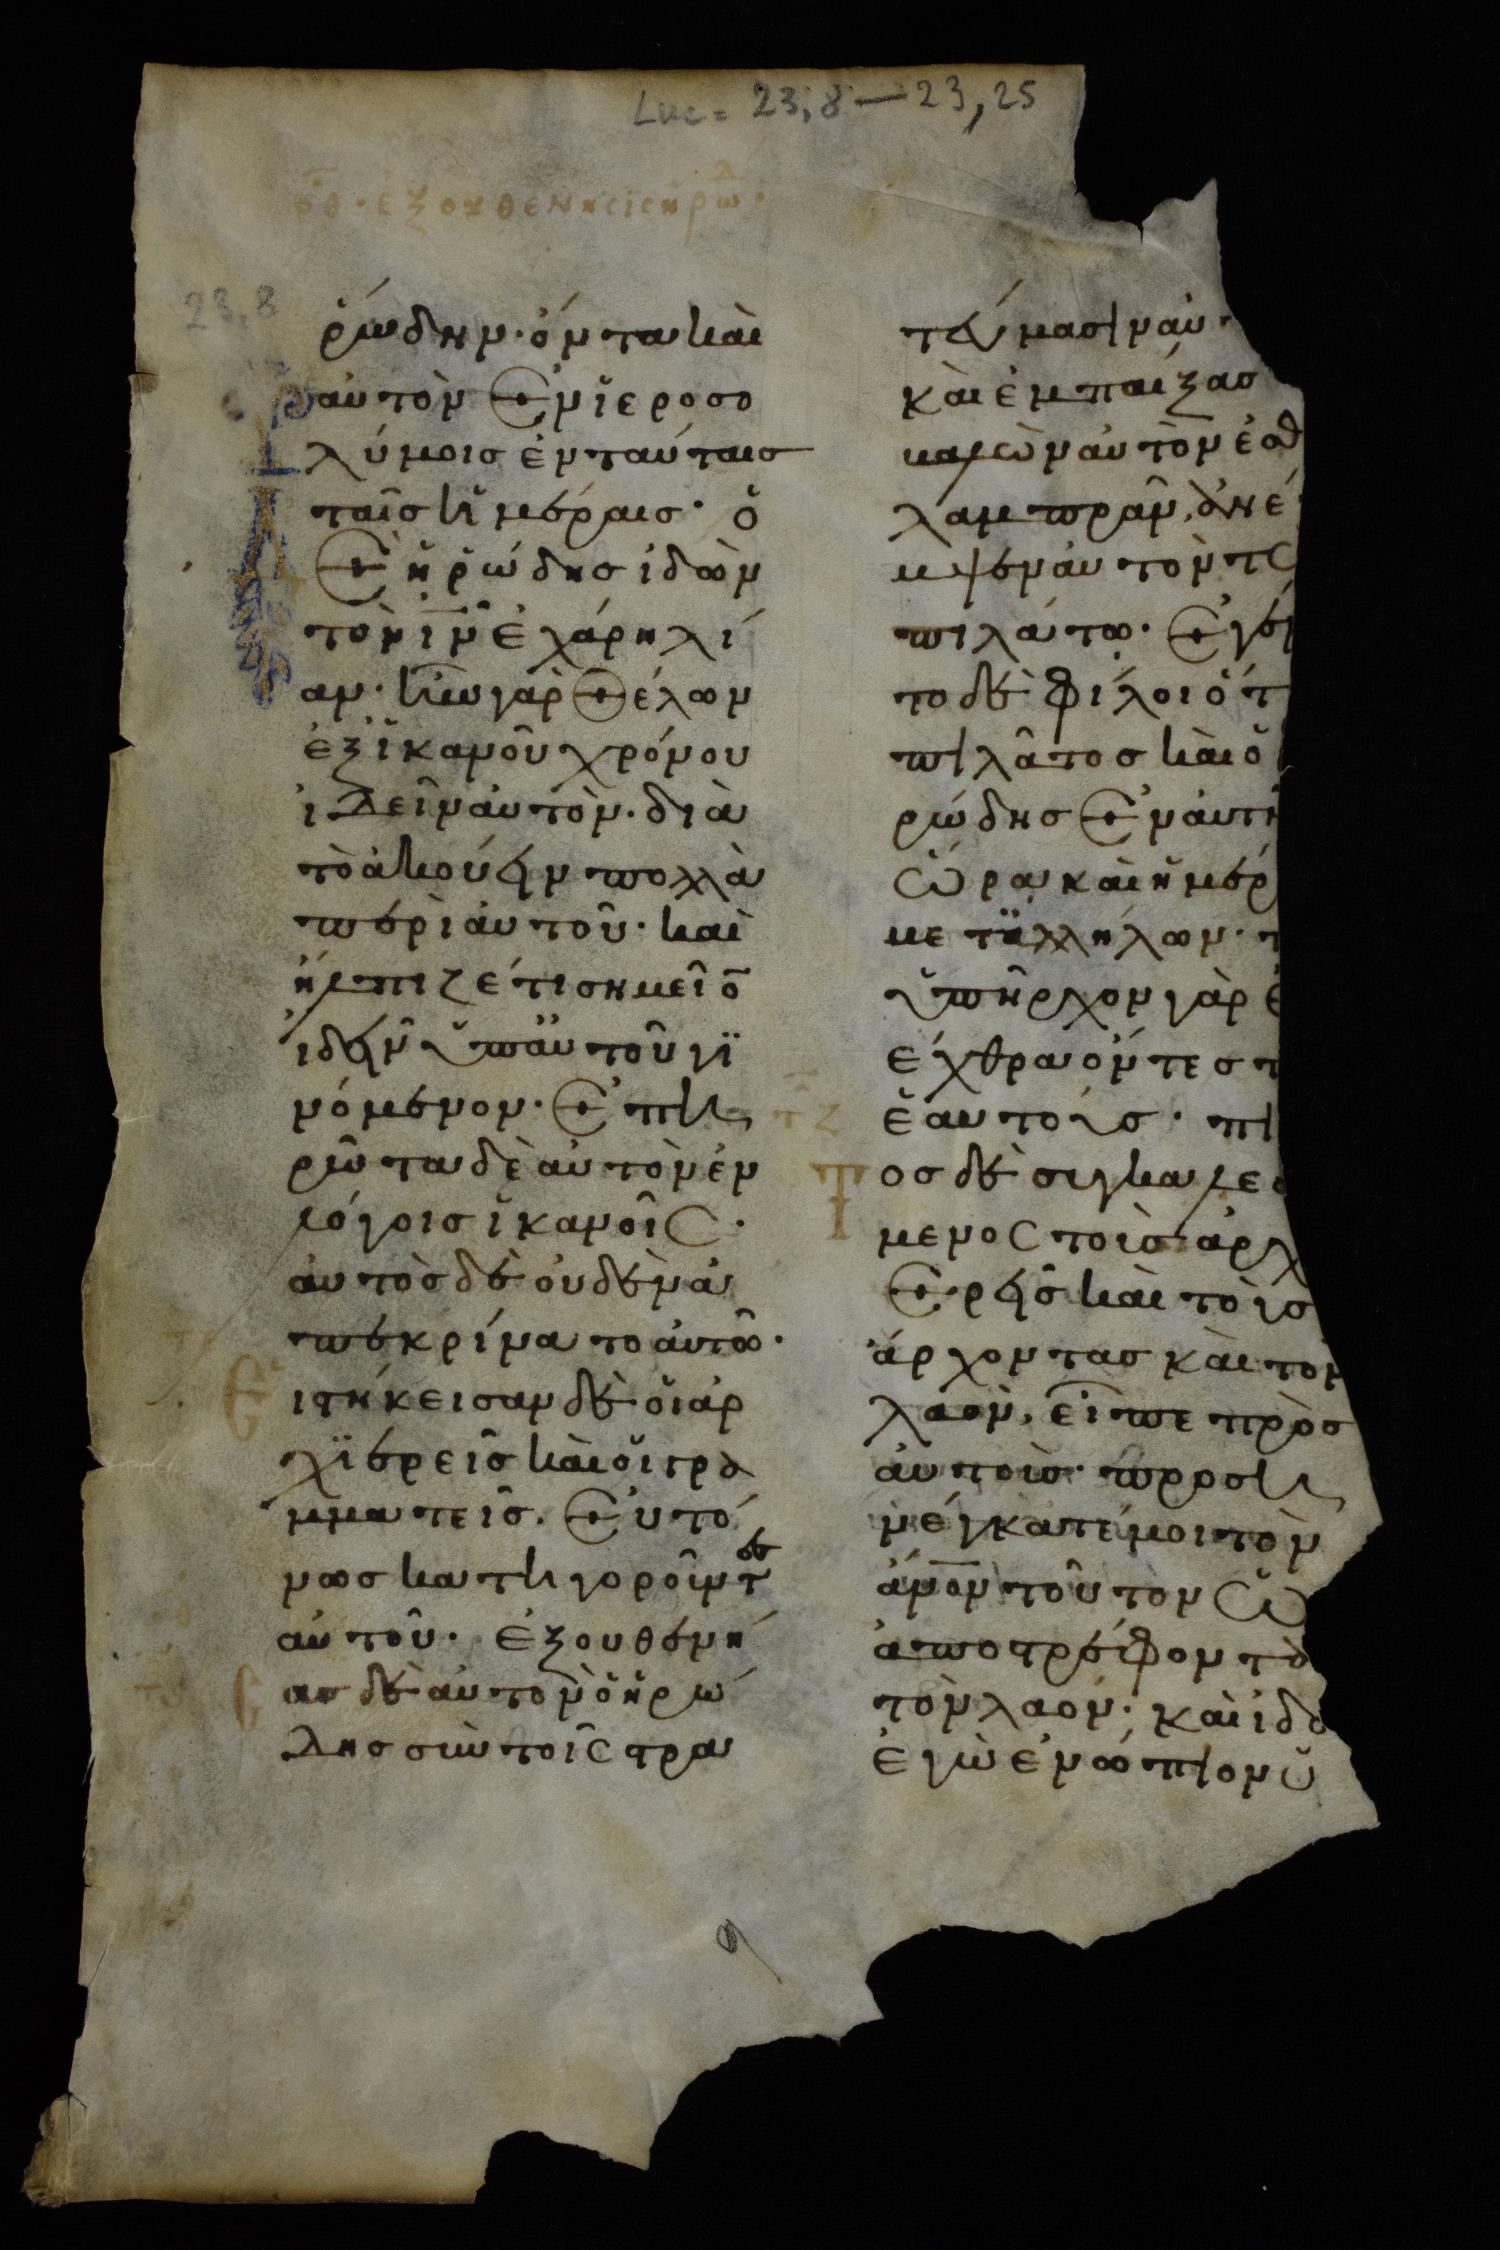 Luc = 23,8 — 23,25
οθ · ἐξουθενησισηρωδ ·
23,8
ρώδην · ὄντα καὶ
αὐτὸν ἐν ἱεροσο
λύμοισ ἐν ταύταισ
ταῖσ ἡμέραισ · ὁ
δὲ ἡρώδησ ἰδὼν
τὸν ιν ἐχάρη λί
αν · ἦν γὰρ θέλων
ἐξ ἱκανοῦ χρόνου
ἰδεῖν αὐτὸν · διὰ
τὸ ἀκούειν πολλὰ
περὶ αὐτοῦ · καὶ
ἤλπιζέ τι σημεῖο
ἰδεῖν ὑπ' αὐτοῦ γι
νόμενον · ἐπη
ρώτα δὲ αὐτὸν ἐν
λόγοισ ἱκανοῖσ ·
αὐτὸσ δὲ οὐδὲν ἀ
πεκρίνατο αὐτῶ ·
Εἱ
ιστήκεισαν δὲ οἱ ἀρ
χιερεῖσ καὶ οἱ γρα
μματεῖσ · εὐτό
νωσ κατηγοροῦντεσ
αὐτοῦ · ἐξουθενή
σασ δὲ αὐτὸν ὁ ἡρώ
δησ σὺν τοῖσ στρα
τεύμασιν αὐ
καὶ ἐμπαίξασ
βαλὼν αὐτὸν ἐσθ
λαμπρὰν, ἀνέ
μψεν αὐτὸν τῶ
πιλάτω · ἐγέ
το δὲ φίλοι ὅ τ
πιλάτοσ καὶ ὁ
ρώδησ ἐν αὐτῆ
ὥρα καὶ ἡμέρ
μετ' ἀλλήλων · π
ὑπῆρχον γὰρ ἐ
ἔχθρα ὄντεσ π
ἑαυτούσ · πι
τζ
τ
οσ δὲ συγκαλεσ
μενοσ τοὺσ ἀρχ
ερεῖσ καὶ τοὺσ
ἄρχοντασ καὶ τὸν
λαὸν, εἶπε πρὸσ
αὐτούσ · προση
νέγκατέ μοι τὸν
ἄνον τοῦτον ὡ
ἀποστρέφοντα
τὸν λαόν · καὶ ἰδο
ἐγὼ ἐνώπιον ὑ
9